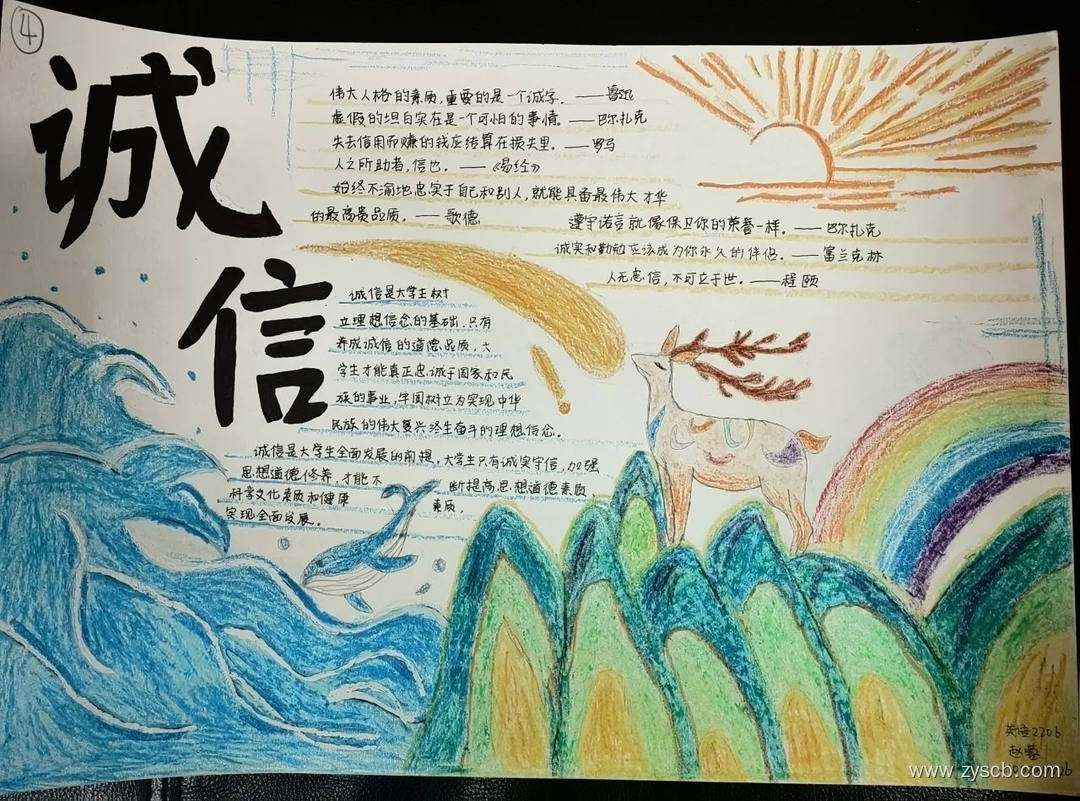 4
诚
信
伟大人格的素质，重要的是一个诚字。——鲁迅
虚假的坦白实在是一个可怕的事情。——巴尔扎克
失去信用而赚的钱应结算在损失里。——罗马
人之所助者，信也。——《易经》
始终不渝地忠实于自己和别人，就能具备最伟大才华
的最高贵品质。——歌德
遵守诺言就像保卫你的荣誉一样。——巴尔扎克
诚实和勤勉应该成为你永久的伴侣。——富兰克林
人无忠信，不可立于世。——程颐
诚信是大学生树
立理想信念的基础，只有
养成诚信的道德品质，大
学生才能真正忠诚于国家和民
族的事业，牢固树立为实现中华
民族的伟大复兴终生奋斗的理想信念。
诚信是大学生全面发展的前提，大学生只有诚实守信，加强
思想道德修养，才能不
断提高思想道德素质，
科学文化素质和健康
素质，
实现全面发展。
英语2206
www.zyscb.com